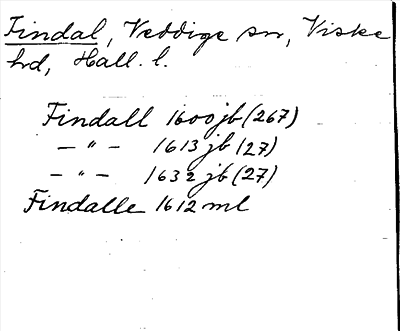 Findal, Veddige sn, Viske
hd, Hall. l.
Findall 1600 jb (267)
— " — 1613 jb (27)
— " — 1632 jb (27)
Findalle 1612 ml